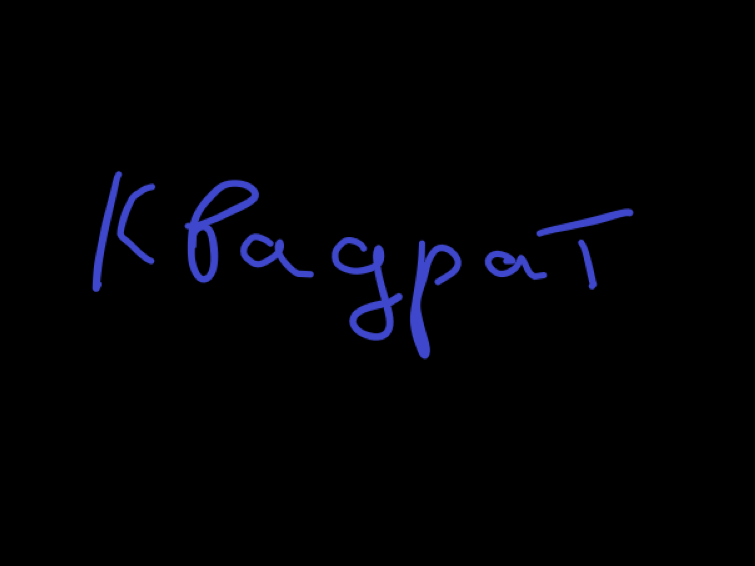 Квадрат